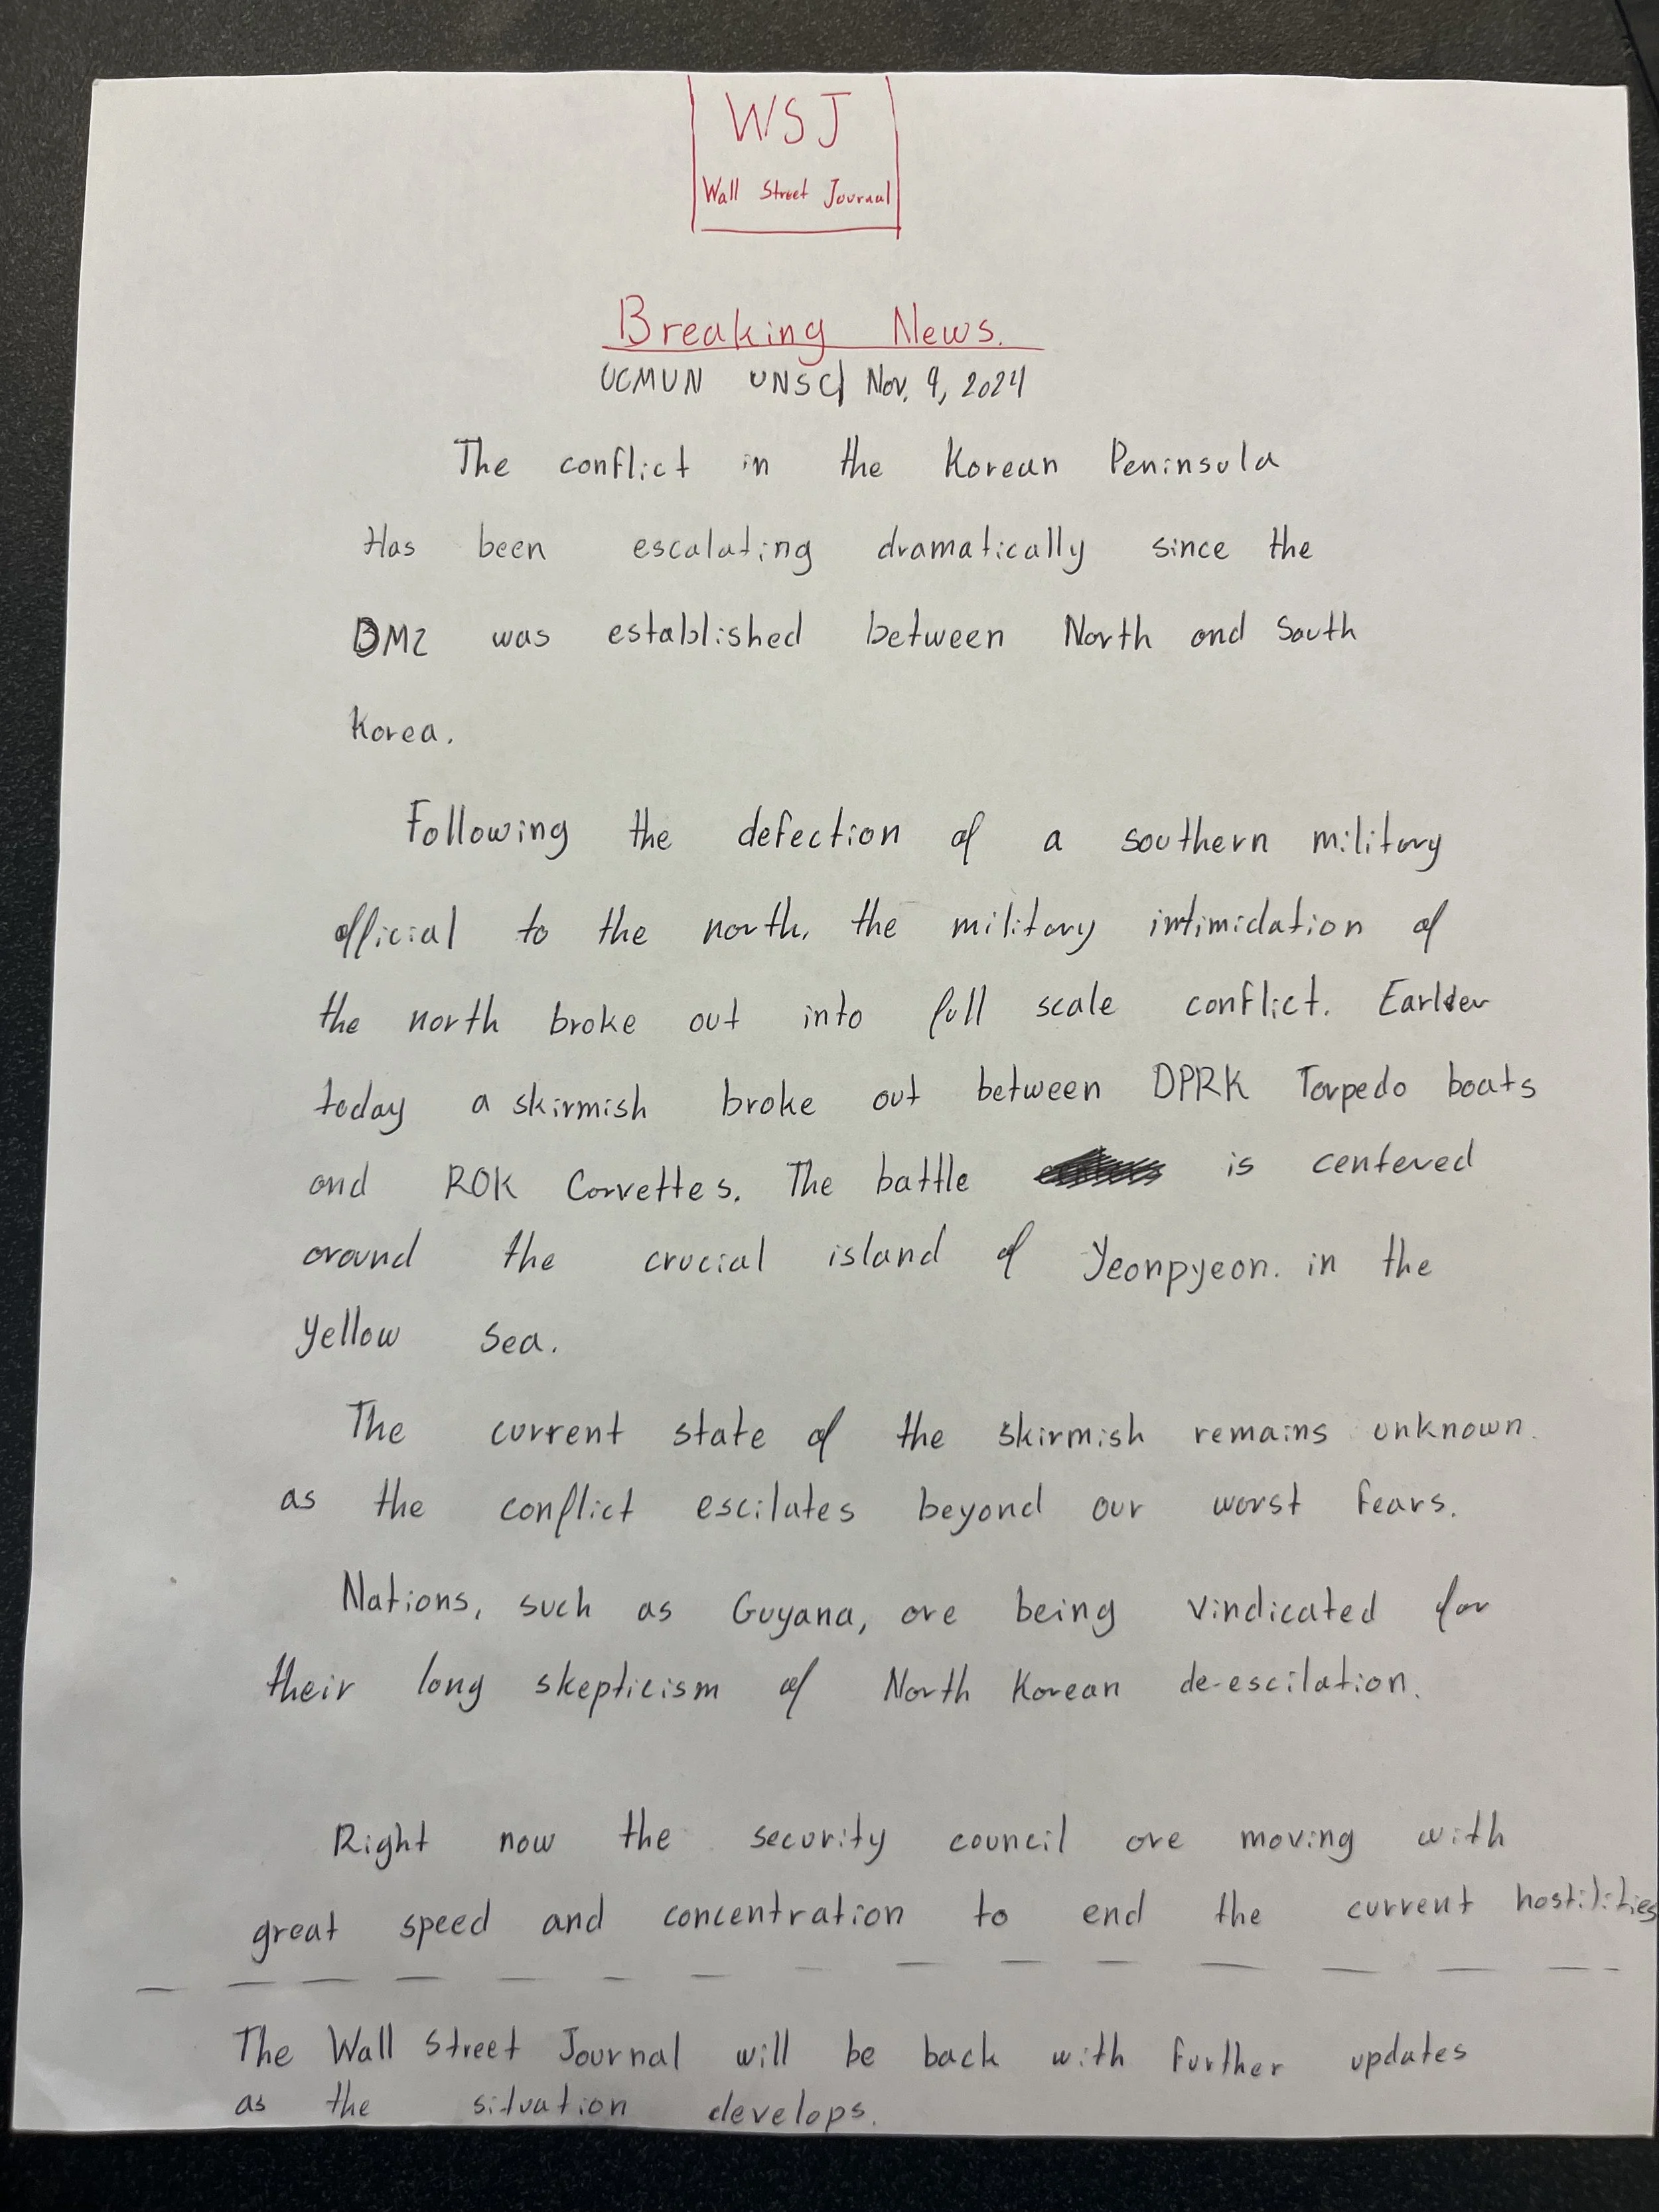 WSJ
Wall Street Journal
Breaking News.
UCMUN UNSC| Nov. 9, 2024
The conflict in the Korean Peninsula
Has been escalating dramatically since the
DMZ was established between North and South
Korea.
Following the defection of a southern military
official to the north, the military intimidation of
the north broke out into full scale conflict. Earlier
today a skirmish broke out between DPRK Torpedo boats
and ROK Corvettes. The battle is centered
around the crucial island of Yeonpyeon. in the
Yellow Sea.
The current state of the skirmish remains unknown.
as the conflict escilates beyond our worst fears.
Nations, such as Guyana, are being vindicated for
their long skepticism of North Korean de-escilation.
Right now the security council are moving with
great speed and concentration to end the current hostilities
The Wall Street Journal will be back with further updates
as the situation develops.